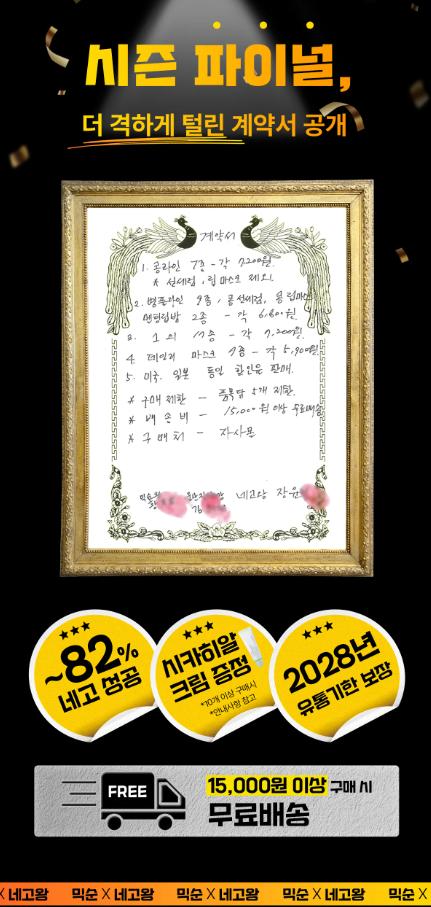 시즌 파이널,
더 격하게 털린 계약서 공개
계약서
1. 콩라인 7종 - 각 7,200원.
* 선세럼, 립 마스크 제외.
2. 9종, 콩선세럼,
2종 - 각 6,800원
3. 종 - 각 7,200원.
4. 데일리 마스크 7종 - 각 5,900원.
5. 미국, 일본 동일 할인율 판매.
* 구매제한 - 품목당 5개 제한.
* 배송비 - 15,000원 이상 무료배송
* 구매처 - 자사몰
네고왕 장
~82%
네고 성공
시카히알
크림 증정
*10개 이상 구매시
*안내사항 참고
2028년
유통기한 보장
FREE
15,000원 이상 구매 시
무료배송
X 네고왕 믹순 X 네고왕 믹순 X 네고왕 믹순 X 네고왕 믹순 X